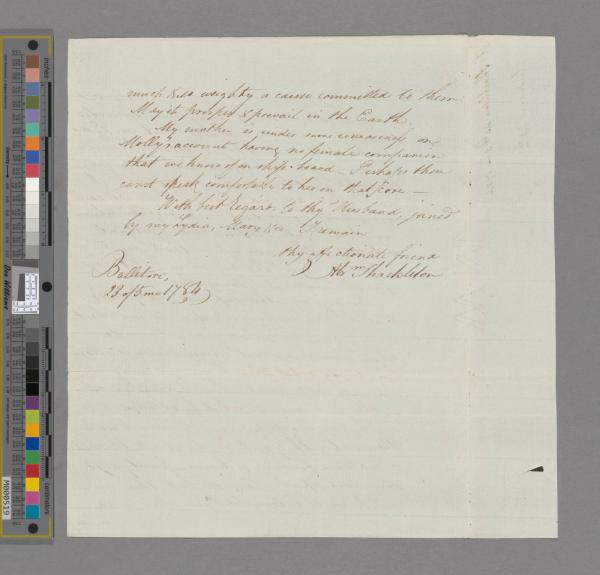 much & so weighty a cause committed to them
May it prosper & prevail in the Earth
My mother is under some uneasiness on
Molly's account having no female companion
that we know of on ship-board - Perhaps thou
canst speak comfortable to her on that score —
With best regards to thy Husband, joined
by my Lydia, Mary &c. I remain
thy affectionate friend
Abm Shackleton
Ballitore,
23 of 5 mo 1784
inches
Density
Don Williams
centimeters
M000519